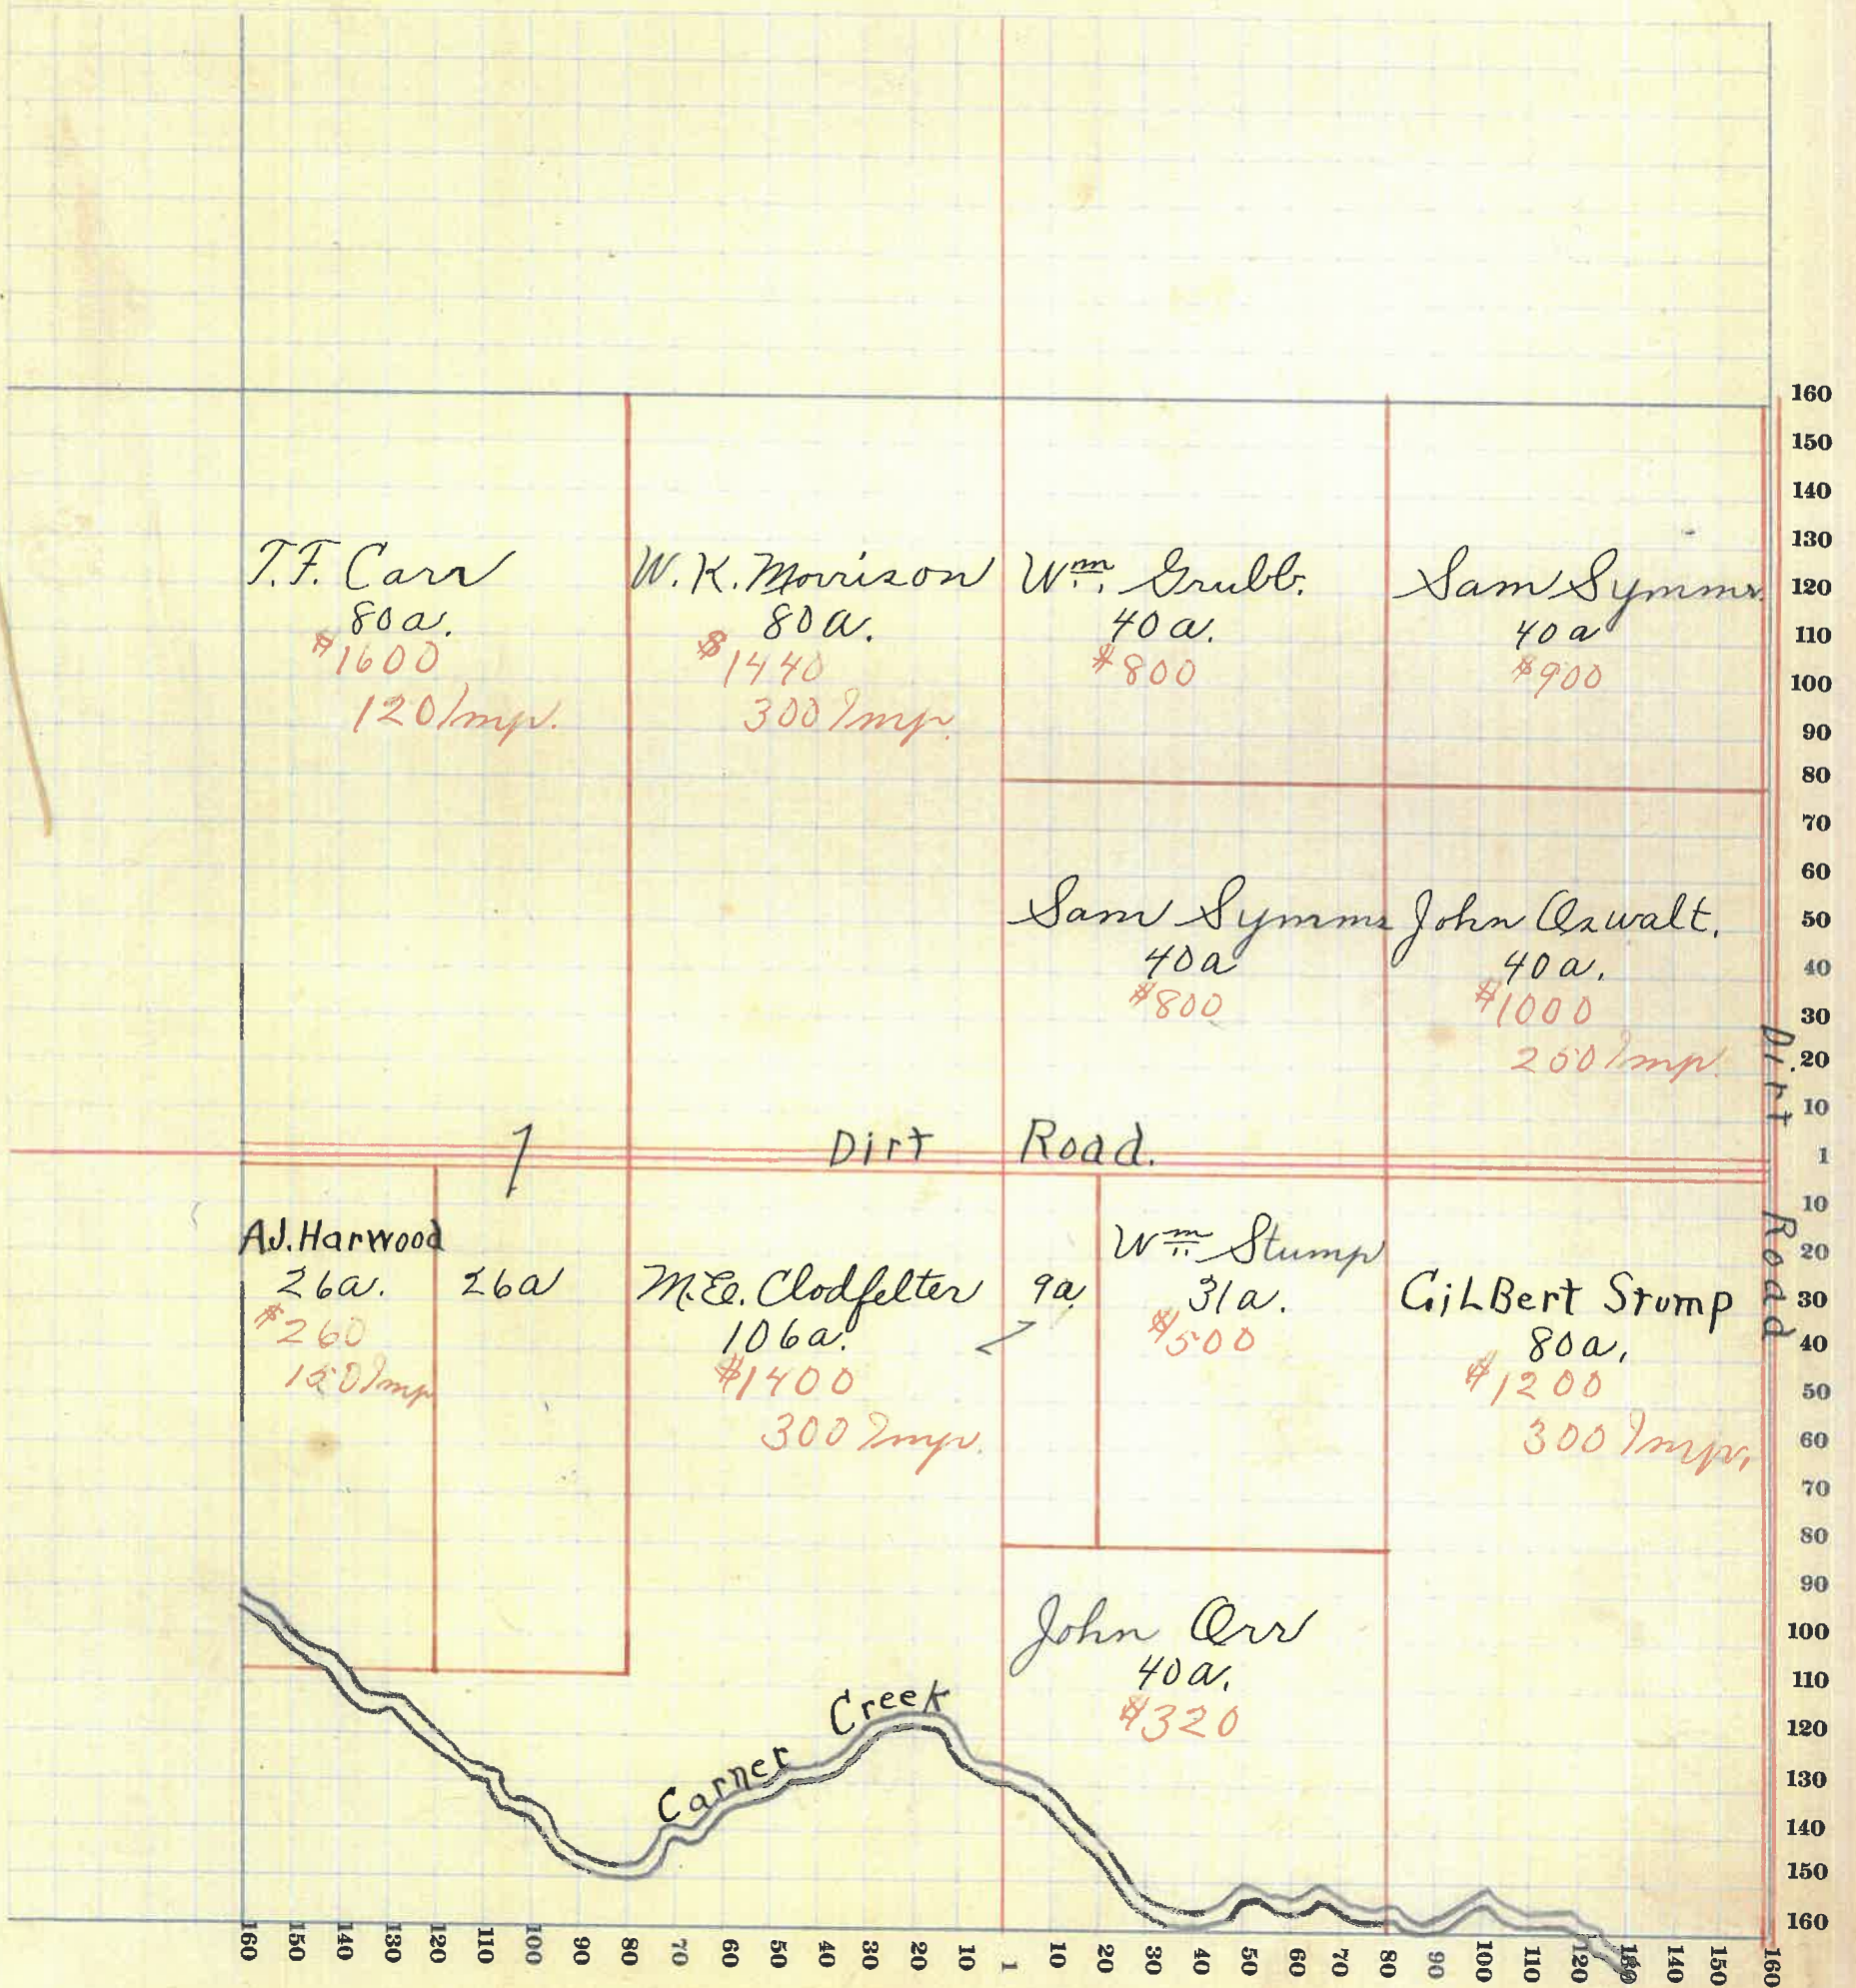 T.F. Carr
80a.
$1600
120 Imp.
W. K. Morrison
80a.
$1440
300 Imp.
Wm. Grubb.
40a.
$800
Sam Symms
40a
$900
Sam Symms
40a
$800
John Oswalt.
40a.
$1000
250 Imp.
Dirt Road.
Dirt Road
A.J. Harwood
26a.
$260
150 Imp
26a
M.E. Clodfelter
106a.
$1400
300 Imp.
9a.
Wm. Stump
31a.
$500
GiLBert Stump
80a.
$1200
300 Imp.
John Orr
40a.
$320
Carner Creek
160
150
140
130
120
110
100
90
80
70
60
50
40
30
20
10
1
10
20
30
40
50
60
70
80
90
100
110
120
130
140
150
160
160 150 140 130 120 110 100 90 80 70 60 50 40 30 20 10 1 10 20 30 40 50 60 70 80 90 100 110 120 130 140 150 160